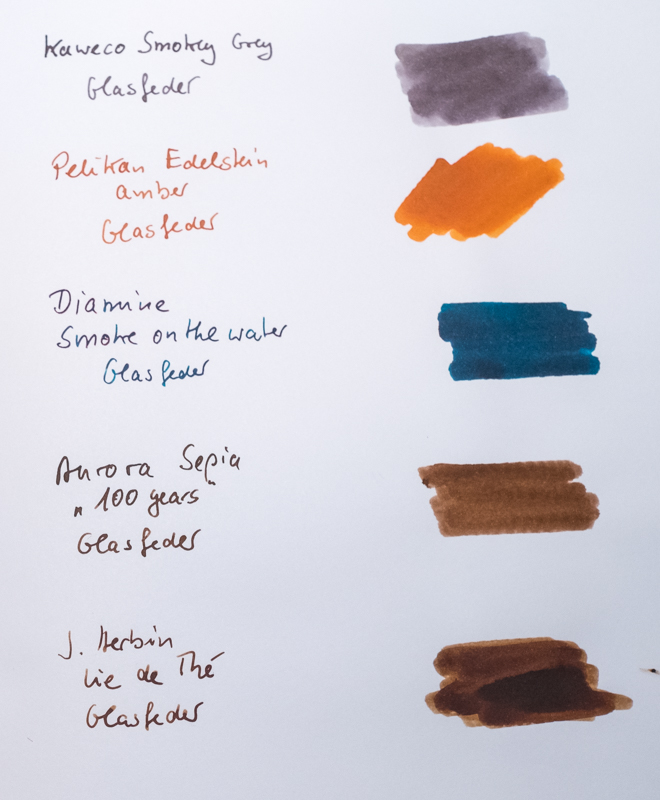 Kaweco Smokey Grey
Glasfeder
Pelikan Edelstein
amber
Glasfeder
Diamine
Smoke on the water
Glasfeder
Aurora Sepia
„100 years"
Glasfeder
J. Herbin
Lie de Thé
Glasfeder